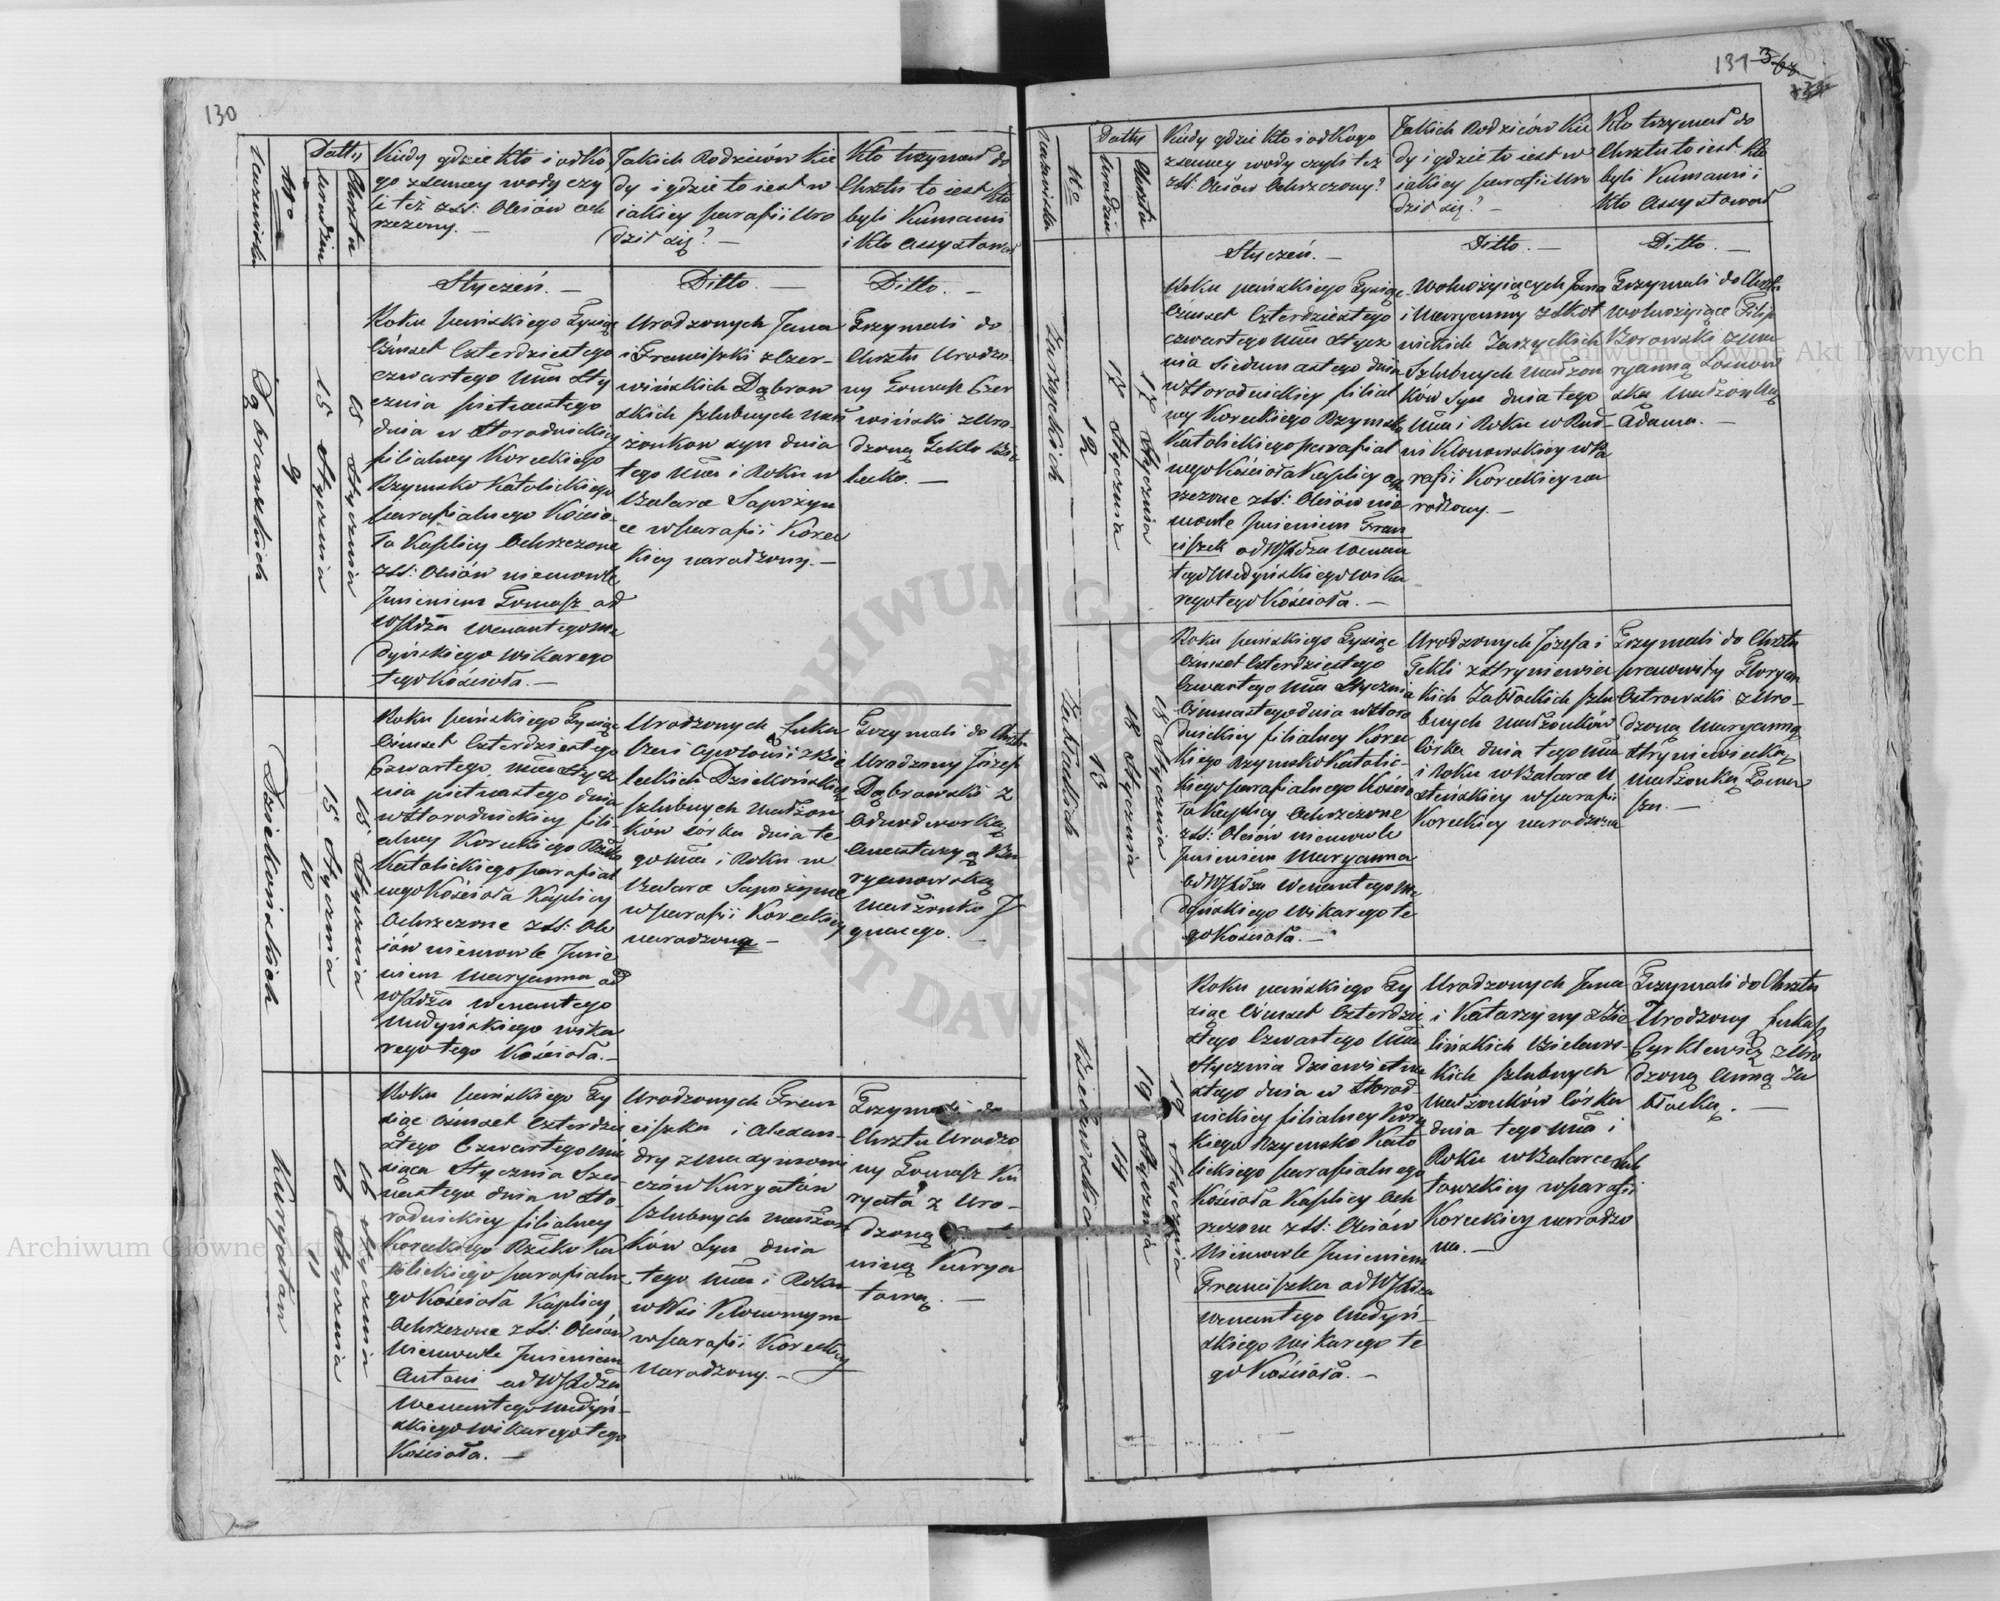 130
Nazwiska
Nro
Datty
Urodzin
Chrztu
Kiedy gdzie kto i od ko
go z samey wody czy
li też z SS: Olejów och
rzczony. —
Jakich Rodziców kie
dy i gdzie to iest w
iakiey parafii Uro
dził się? —
Kto trzymał do
Chrztu to iest kto
byli Kumami
i kto assystował
Styczeń. —
Ditto. —
Ditto. —
Dąbrowskich
9
15 Stycznia
15 Stycznia
Roku pańskiego Tysiąc
Ośmset Czterdziestego
czwartego Mca Sty
cznia pietnastego
dnia w Storodnickiey
filialney Koreckiego
Rzymsko Katolickiego
parafialnego Kościo
ła Kaplicy Ochrzczone
z SS: Olejów niemowle
Imieniem Tomasz od
W Xdza Wenantego Me
dyńskiego Wikarego
tego Kościoła. —
Urodzonych Jana
i Franciszki z Czer-
wińskich Dąbrow
skich szlubnych Mał
żonkow syn dnia
tego Mca i Roku w
Batare Sapożyn
ce w parafii Korec
kiey narodzony. —
Trzymali do
Chrztu Urodzo
ny Tomasz Czer
wiński z Uro-
dzoną Teklo
Dzielkońskich
10
15 Stycznia
15 Stycznia
Roku pańskiego Tysiąc
Ośmset Czterdziestego
Czwartego Mca Stycz
nia pietnastego dnia
w Storodnickiey fili-
alney Koreckiego Rzsko
Katolickiego parafial
nego Kościoła Kaplicy
Ochrzczone z SS: Ole
iów niemowle Imie
niem Maryanna od
W Xdza Wenantego
Medyńskiego wika
rego tego Kościoła. —
szlubnych Małżon
ków córka dnia te
go Mca i Roku w
Batare Sapożynce
w parafii Koreckiey
narodzona —
Trzymali do Chrztu
Urodzony Józef
Dąbrowski z
Małżonko J
gnacego. —
Kuryatów
11
16 Stycznia
16 Stycznia
Roku pańskiego Ty
siąc ośmset Czterdzie
stego Czwartego Mie
siąca Stycznia Szes
nastego dnia w Sto
rodnickiey filialney
Koreckiego Rzsko Ka
tolickiego parafialne
go Kościoła Kaplicy
Ochrzczone z SS: Olejów
Niemowle Imieniem
Antoni od W Xdza
Wenantego Medyń-
skiego Wikarego tego
Kościoła. —
Urodzonych Fran
ciszka i Alexan-
dry z Maxymowi
czów Kuryatów
szlubnych małżon
ków Syn dnia
tego Mca i Roku
w Wsi
w parafii Koreckiey
narodzony. —
Trzymali do
Chrztu Urodzo
ny Tomasz Ku
ryata z Uro-
dzoną
Kurya
tową. —
131
Nazwiska
Nro
Datty
Urodzin
Chrztu
Kiedy gdzie kto i od kogo
z samey wody czyli też
z SS: Olejów Ochrzczony?
Jakich Rodziców kie
dy i gdzie to iest w
iakiey parafii Uro
dził się? —
Kto trzymał do
Chrztu to iest kto
byli Kumami i
kto Assystował
Styczeń. —
Ditto. —
Ditto. —
Zarzyckich
12
17 Stycznia
17 Stycznia
Roku pańskiego Tysiąc
Ośmset Czterdziestego
czwartego Mca Stycz
nia Siedmnastego dnia
w Storodnickiey filial
ney Koreckiego Rzymsko
Katolickiego parafial
nego Kościoła Kaplicy och
rzczone z SS: Olejów nie
mowle Imieniem Fran
ciszek od W Xdza Wenan
tego Medyńskiego Wika
rego tego Kościoła. —
Wolnożyiących Jana
i Maryanny z Skot
nickich Zarzyckich
Szlubnych Małżon
ków Syn dnia tego
Mca i Roku w Rud
ni Klonowskiey w Pa
rafii Koreckiey na
rodzony. —
Trzymali do Chrztu
Wolnożyiące Filip
Borowski z Ma
ryanną
Adama. —
Zabłockich
13
18 Stycznia
18 Stycznia
Roku pańskiego Tysiąc
Ośmset Czterdziestego
Czwartego Mca Stycznia
Ośmnastego dnia w Storo
dnickiey filialney Korec
kiego Rzymsko Katolic-
kiego parafialnego Kościo
ła Kaplicy Ochrzczone
z SS: Olejów niemowle
Imieniem Maryanna
od W Xdza Wenantego Me
dyńskiego Wikarego te
go Kościoła. —
Urodzonych Józefa i
Tekli z Hryniewic
kich Zabłockich szlu
bnych Małżonków
córka dnia tego Mca
i Roku w Batare U
steńskiey w parafii
Koreckiey narodzona
Trzymali do Chrztu
pracowity Floryan
Ostrowski z Uro-
dzoną Maryanną
Hryniewiecką
Małżonką Tomasz
Bielawskich
14
19 Stycznia
19 Stycznia
Roku pańskiego Ty
siąc Ośmset Czterdzie
stego Czwartego Mca
Stycznia dziewietna
stego dnia w Storod
nickiey filialney Korec
kiego Rzymsko Kato
lickiego parafialnego
Kościoła Kaplicy Och
rzczone z SS: Olejów
Niemowle Imieniem
Franciszka od W Xdza
Wenantego Medyń-
skiego Wikarego te
go Kościoła. —
Urodzonych Jana
i Katarzyny z Zie
lińskich Bielaws-
kich szlubnych
Małżonków Córka
dnia tego Mca i
Roku w Batarce
w parafii
Koreckiey narodzo
na. —
Trzymali do Chrztu
Urodzony Łukasz
Cyrklewicz z Uro
dzoną Anną Za
błocką. —
Archiwum Główne Akt Dawnych
Archiwum Główne Akt Dawnych